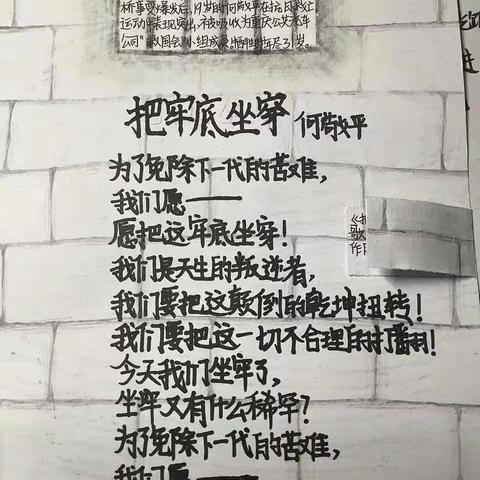 桥事变爆发后,19岁的何敬平在抗日救亡
运动中表现突出,被吸收为重庆公共汽车
公司"救国会"小组成员,牺牲时年尽31岁。
把牢底坐穿 何敬平
为了免除下一代的苦难,
我们愿——
愿把这牢底坐穿!
我们是天生的叛逆者,
我们要把这颠倒的乾坤扭转!
我们要把这一切不合理的打翻!
今天我们坐牢了,
坐牢又有什么稀罕?
为了免除下一代的苦难,
我们愿——
进
歌
作